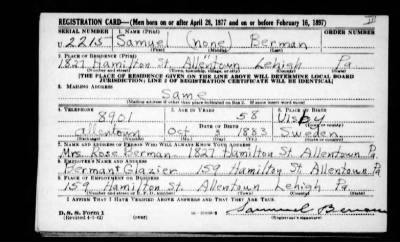 REGISTRATION CARD—(Men born on or after April 28, 1877 and on or before February 16, 1897)
SERIAL NUMBER 1. NAME (Print) ORDER NUMBER
U 2215 Samuel (none) Berman
(First) (Middle) (Last)
2. PLACE OF RESIDENCE (Print)
1827 Hamilton St. Allentown Lehigh Pa
(Number and street) (Town, township, village, or city) (County) (State)
[THE PLACE OF RESIDENCE GIVEN ON THE LINE ABOVE WILL DETERMINE LOCAL BOARD
JURISDICTION; LINE 2 OF REGISTRATION CERTIFICATE WILL BE IDENTICAL]
3. MAILING ADDRESS
Same
[Mailing address if other than place indicated on line 2. If same insert word same]
4. TELEPHONE 5. AGE IN YEARS 6. PLACE OF BIRTH
8901 58 Visby
allentown Oct 3 1883 Sweden
7. NAME AND ADDRESS OF PERSON WHO WILL ALWAYS KNOW YOUR ADDRESS
Mrs. Rose Berman 1827 Hamilton St. Allentown Pa.
8. EMPLOYER'S NAME AND ADDRESS
Berman + Glazier 159 Hamilton St. Allentown Pa
9. PLACE OF EMPLOYMENT OR BUSINESS
159 Hamilton St. Allentown Lehigh Pa.
I AFFIRM THAT I HAVE VERIFIED ABOVE ANSWERS AND THAT THEY ARE TRUE.
D. S. S. Form 1
(Revised 4-1-42) Samuel Berman
(Registrant's signature)